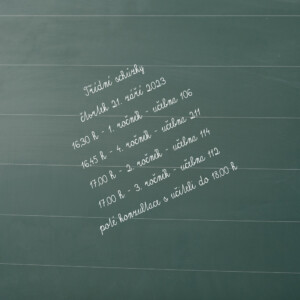 Třídní schůzky
čtvrtek 21. září 2023
16.30 h - 1. ročník - učebna 106
16.45 h - 4. ročník - učebna 211
17.00 h - 2. ročník - učebna 114
17.00 h - 3. ročník - učebna 112
poté konzultace s učiteli do 18.00 h